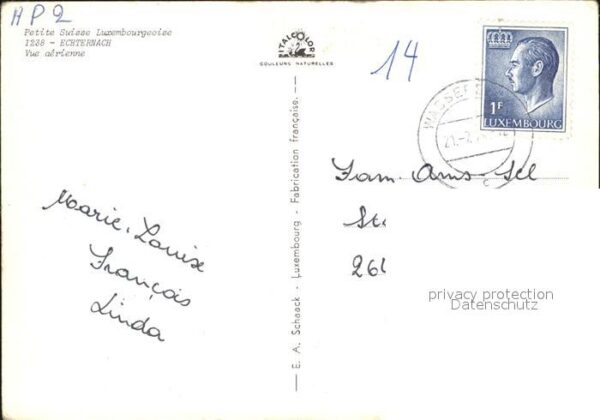 AP2
Petite Suisse Luxembourgeoise
1238 - ECHTERNACH
Vue aérienne
ITALCOLOR
COULEURS NATURELLES
14
1F
LUXEMBOURG
WASSER
21.-2.
c
E. A. Schaack - Luxembourg - Fabrication française.
Marie-Louise
François
Linda
Fam.
St.
26
privacy protection
Datenschutz